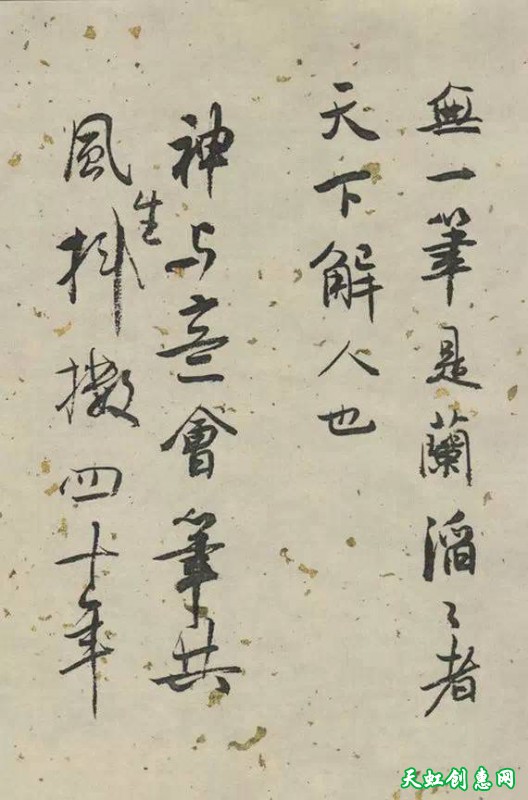 無一筆是蘭滔〻者
天下解人也
神与意會筆共
風生抖擻四十年
天虹创惠网